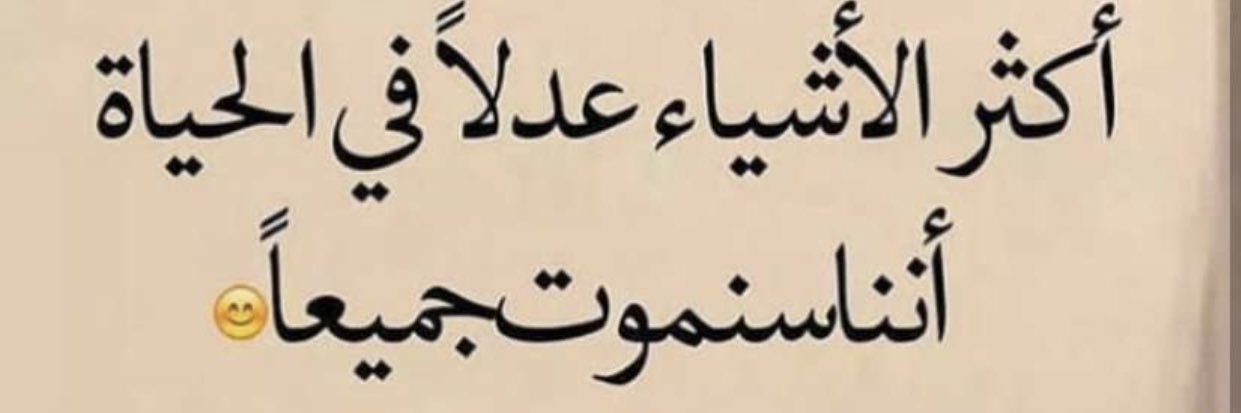 أكثر الأشياء عدلاً في الحياة
أننا سنموت جميعاً😊